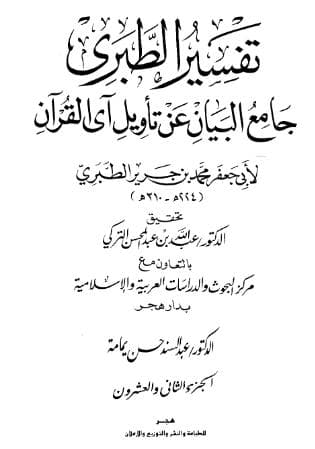 تفسير الطبرى
جامع البيان عن تأويل آى القرآن
لأبى جعفر محمد بن جرير الطبرى
(٢٢٤هـ - ٣١٠هـ)
تحقيق
الدكتور/ عبد الله بن عبد المحسن التركى
بالتعاون مع
مركز البحوث والدراسات العربية والإسلامية
بدار هجر
الدكتور/ عبد السند حسن يمامة
الجزء الثانى والعشرون
هجر
للطباعة والنشر والتوزيع والإعلان